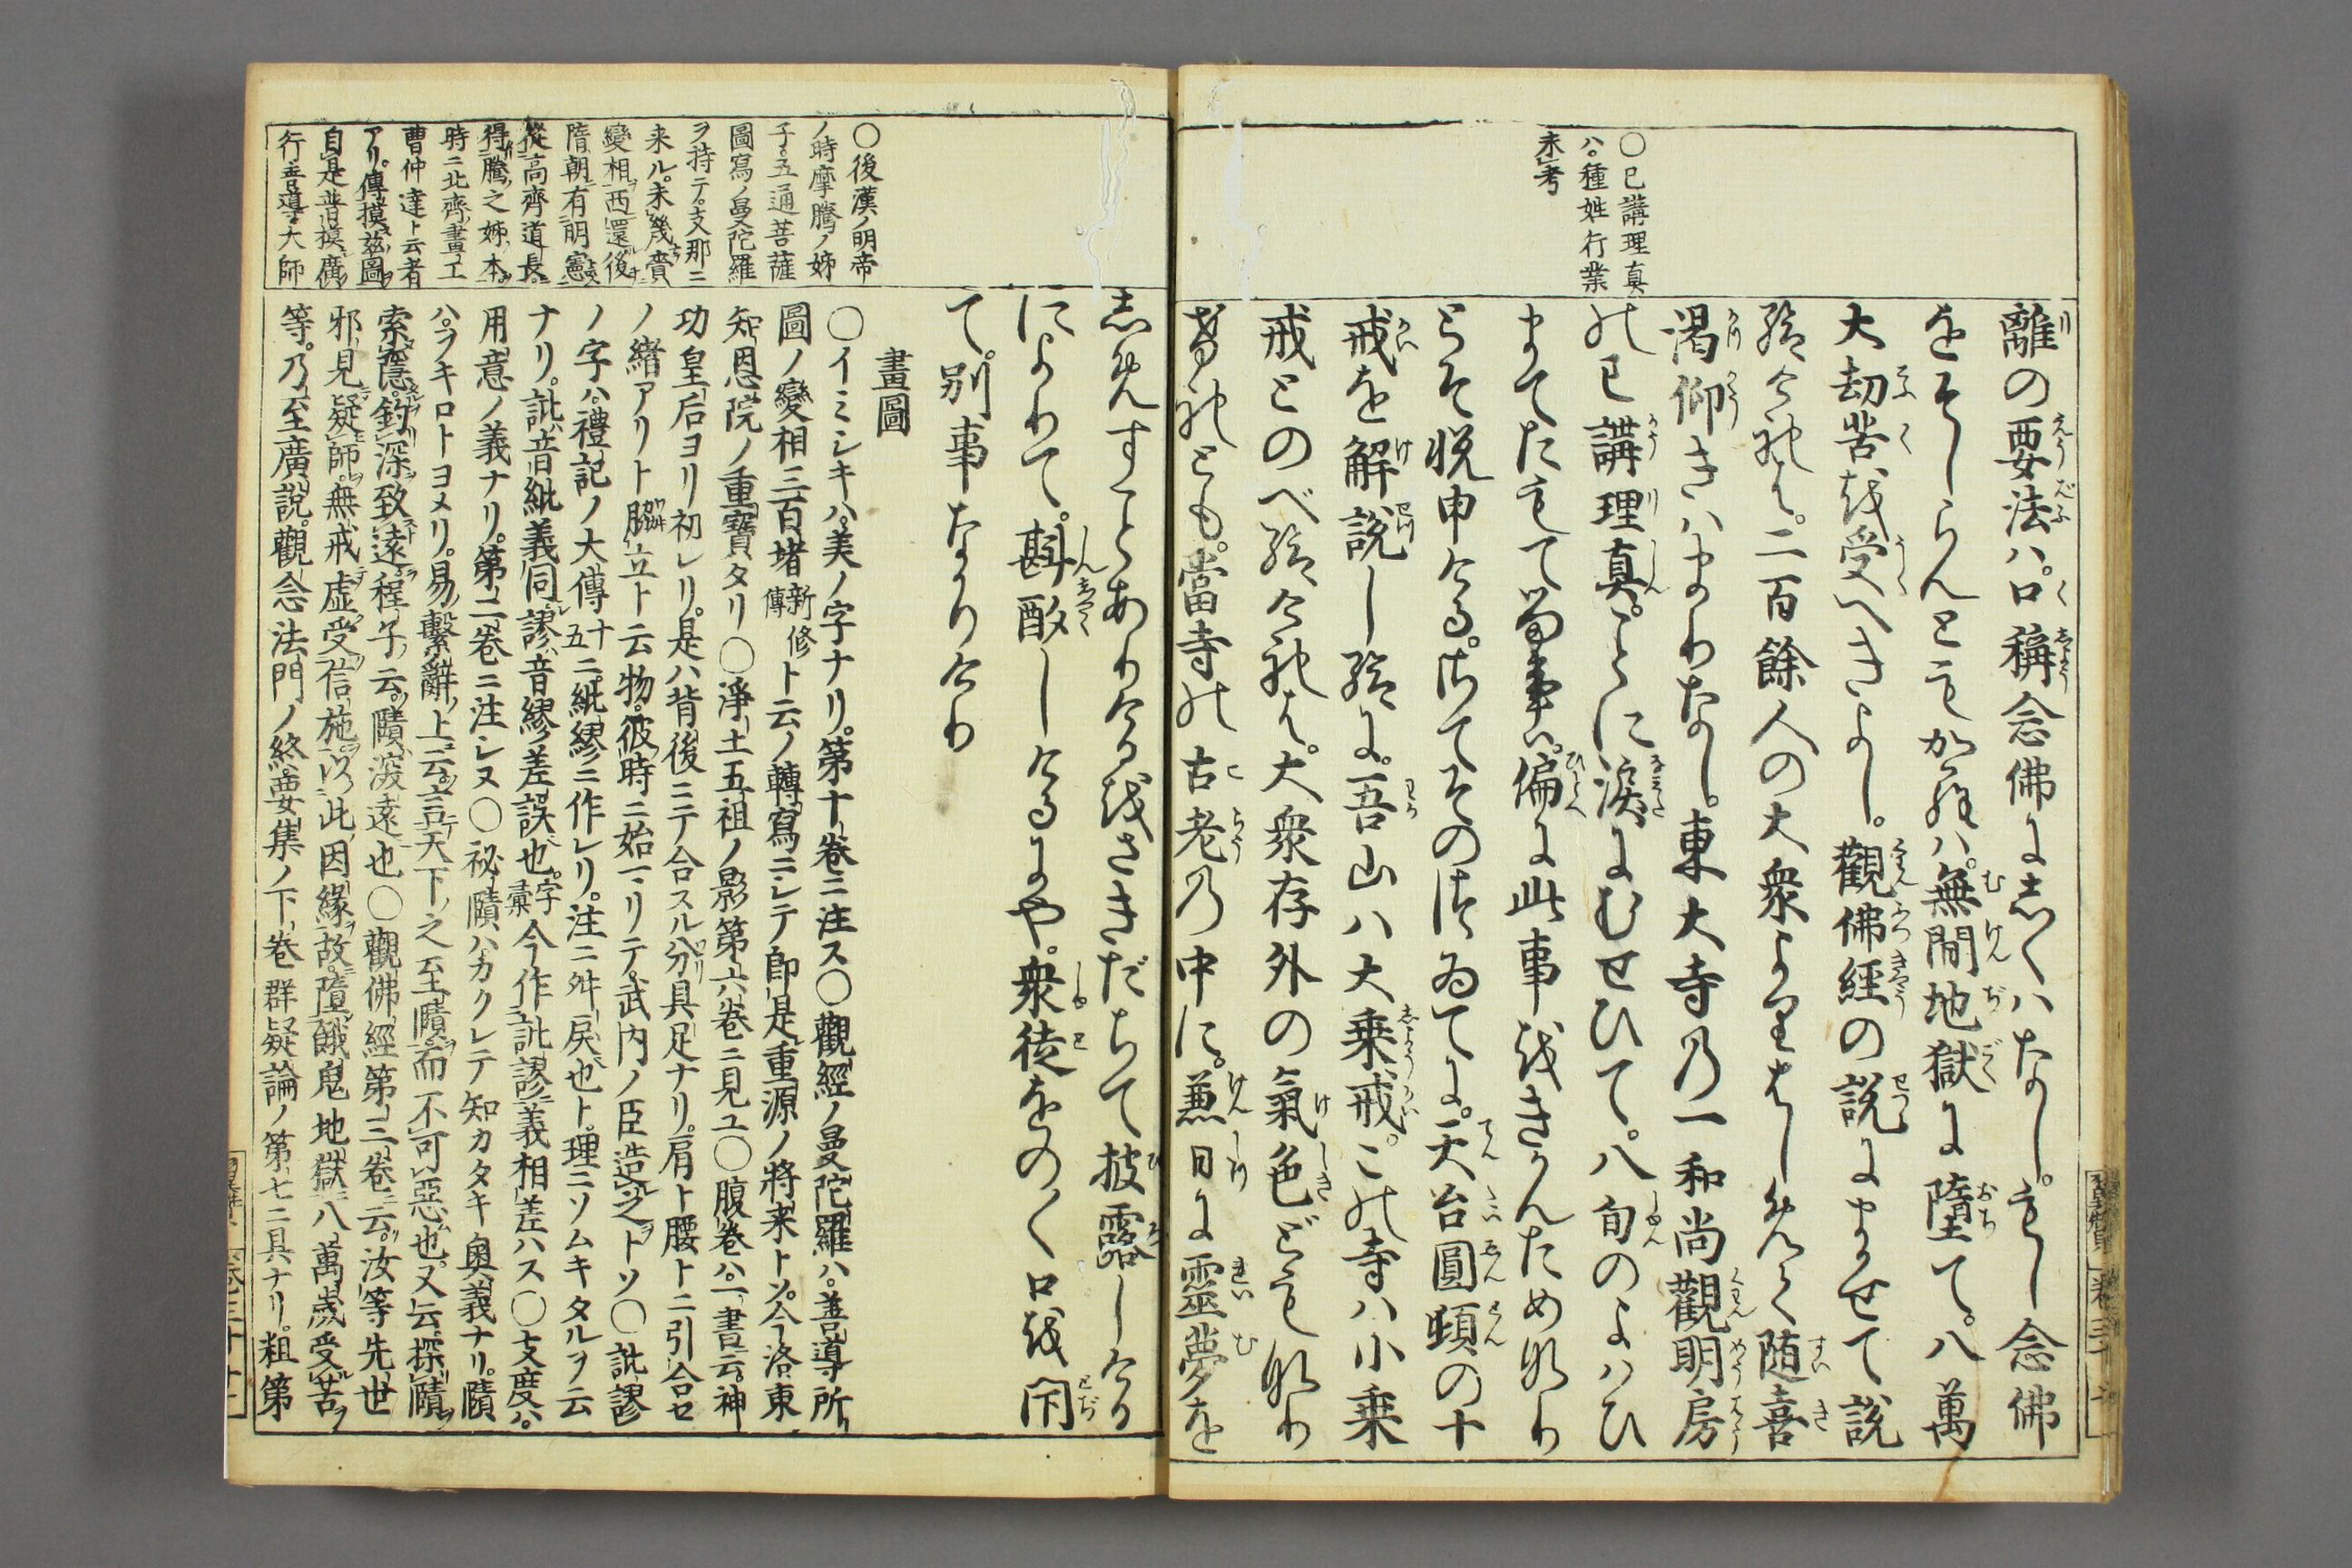 〇已講理真
ハ。種姓行業
未考
離の要法ハ。口稱念佛にしくハなし。もし念佛
をそしらんともからハ。無間地獄に墮て。八萬
大劫苦を受へきよし。觀佛經の説にまかせて説
給けれは。二百餘人の大衆よりはしめて随喜
渇仰きハまりなし。東大寺の一和尚觀明房
の已講理真。ことに涙にむせひて。八旬のよハひ
まてたもて事ハ。偏に此事をきかんためなり
とそ悦申ける。さてその後ゐてに。天台圓頓の十
戒を解説し給に。吾山ハ大乗戒。この寺ハ小乗
戒とのべ給けれは。大衆存外の氣色どもなり
けれとも。當寺の古老の中に。兼日に靈夢を
しめすことありけるをさきだちて披露しける
によりて。斟酌しけるにや。衆徒をのく口を閇
て。別事なかりけり
畫圖
〇イミシキハ。美ノ字ナリ。第十卷ニ注ス〇觀經ノ曼陀羅ハ。善導所
圖ノ變相三百堵新修傳ト云ノ轉寫ニシテ即是重源ノ將来トソ。今洛東
知恩院ノ重寶タリ〇淨土五祖ノ影第六卷ニ見ユ〇腹卷ハ。一書云。神
功皇后ヨリ初レリ。是ハ背後ニテ合スル分具足ナリ。肩ト腰トニ引合セ
ノ緒アリト脇立ト云物。彼時ニ始リテ。武内ノ臣造之トソ〇訛謬
ノ字ハ。禮記ノ大傳十五ニ。紕繆ニ作レリ。注ニ舛戻也ト。理ニソムキタルヲ云
ナリ。訛音紕義同。謬音繆差誤也。字彙今作訛謬義相差ハス〇支度ハ。
用意ノ義ナリ。第二卷ニ注シヌ〇祕賾ハカクレテ知カタキ奥義ナリ。賾
ハフキロトヨメリ。易繫辭上云。言天下之至賾而不可惡也。又云。探賾
索隱。釣深致遠程子云。賾深遠也〇觀佛經第三卷云。汝等先世
邪見疑師。無戒虚受信施。以此因緣故。墮餓鬼地獄八萬歳受苦
等。乃至廣説。觀念法門ノ終要集ノ下卷群疑論ノ第七ニ具ナリ。粗第
〇後漢ノ明帝
ノ時摩騰ノ姊
子。五通菩薩
圖寫ノ曼陀羅
ヲ持テ。支那ニ
来ル。未幾賷
變相西還後
隋朝有明憲
從高齊道長
得騰之姊本
時ニ北齊畫工
曹仲達ト云者
アリ。傳摸茲圖
自是普摸廣
行善導大師